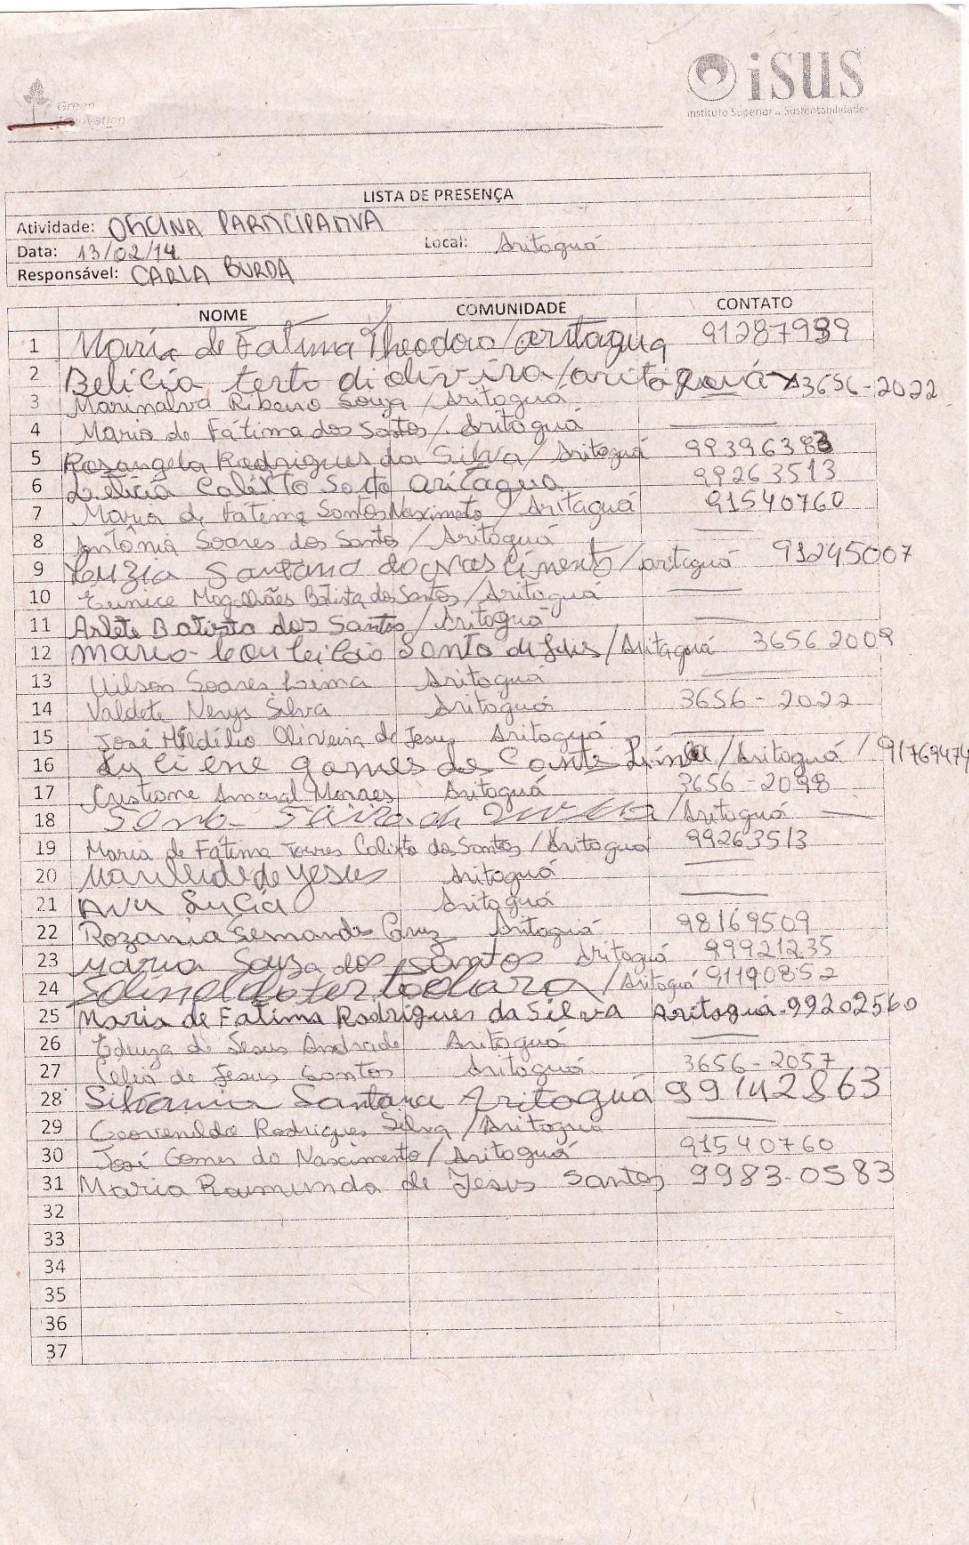 Green
iSUS
Instituto Superior de Sustentabilidade
LISTA DE PRESENÇA
Atividade: OFICINA PARTICIPATIVA
Data: 13/02/14 Local: Aritaguá
Responsável: CARLA BURDA
NOME COMUNIDADE CONTATO
1 Maria de Fatima Theodoro/aritagua 91287939
2 Belicia terto di olivira/aritaguá 3656-2022
3 Marinalva Ribeiro Souza / Aritaguá
4 Maria de Fátima dos Santos / Aritaguá
5 Rosangela Rodrigues da Silva / Aritaguá 99396383
6 Leticia Calixto Souto aritagua 99263513
7 Maria de Fatima Santos Nascimento / Aritaguá 91540760
8 Antônia Soares dos Santos / Aritaguá
9 Luzia Santana do nascimento / aritaguá 91245007
10 Eunice Magalhães Batista dos Santos / Aritaguá
11 Arlete Batista dos Santos / Aritaguá
12 Santo / Aritaguá 3656 2009
13 Uilson Soares Lima Aritaguá
14 Valdete Nerys Silva Aritaguá 3656-2022
15 José Oliveira de Jesus Aritaguá
16 Luciene gomes do / Aritaguá / 9176947
17 Cristiane Amaral Moraes Aritaguá 3656-2098
18 / Aritaguá
19 Maria de Fátima Torres Calixto dos Santos / Aritaguá 99263513
20 Marileide de Jesus Aritaguá
21 Ana Lucia Aritaguá
22 Rozania Fernandes Cruz Aritaguá 98169509
23 Maria Souza dos Santos Aritaguá 99921235
24 / Aritaguá 91190852
25 Maria de Fatima Rodrigues da Silva Aritaguá-99202560
26 Edeuza de Jesus Andrade Aritaguá
27 Celia de Jesus Santos Aritaguá 3656-2057
28 Silvania Santana Aritaguá 99142863
29 Geovenildo Rodrigues Silva / Aritaguá
30 José Gomes do Nascimento / Aritaguá 91540760
31 Maria Raimunda de Jesus Santos 9983-0583
32
33
34
35
36
37